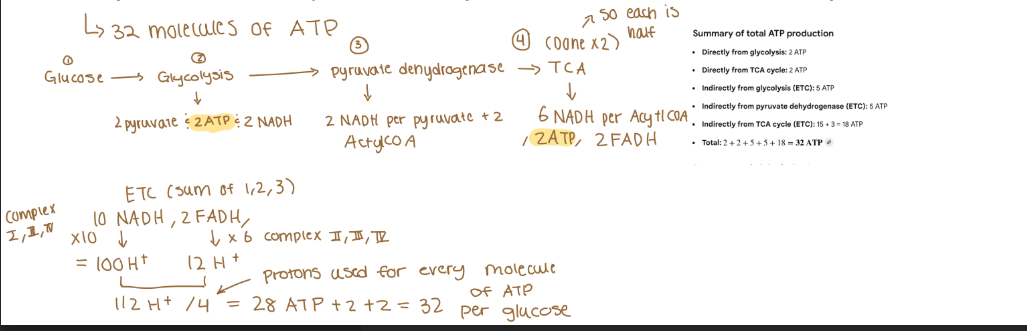 ↳ 32 molecules of ATP
↗ so each is half
① Glucose → ② Glycolysis → ③ pyruvate dehydrogenase → ④ (Done x2) TCA
2 pyruvate & 2 ATP & 2 NADH
2 NADH per pyruvate + 2 ActylCOA
6 NADH per AcytlCOA, 2ATP, 2 FADH
Summary of total ATP production
• Directly from glycolysis: 2 ATP
• Directly from TCA cycle: 2 ATP
• Indirectly from glycolysis (ETC): 5 ATP
• Indirectly from pyruvate dehydrogenase (ETC): 5 ATP
• Indirectly from TCA cycle (ETC): 15 + 3 = 18 ATP
• Total: 2 + 2 + 5 + 5 + 18 = 32 ATP
ETC (sum of 1,2,3)
10 NADH, 2 FADH,
complex I, III, IV x10 ↓ ↓ x 6 complex II, III, IV
= 100H⁺ 12 H⁺
protons used for every molecule of ATP
112 H⁺ /4 = 28 ATP +2 +2 = 32 per glucose